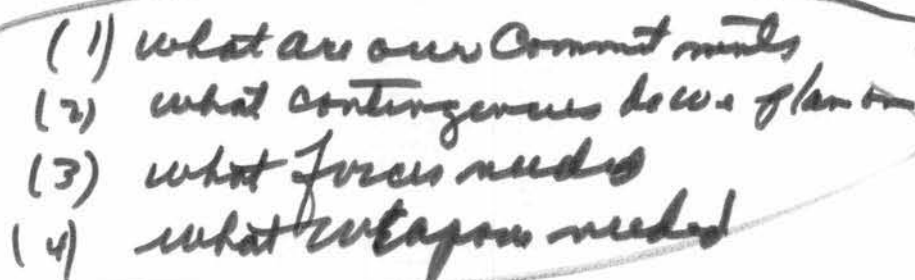 (1) what are our Commitments
(2) what contingencies do we plan on
(3) what forces needed
(4) what weapons needed